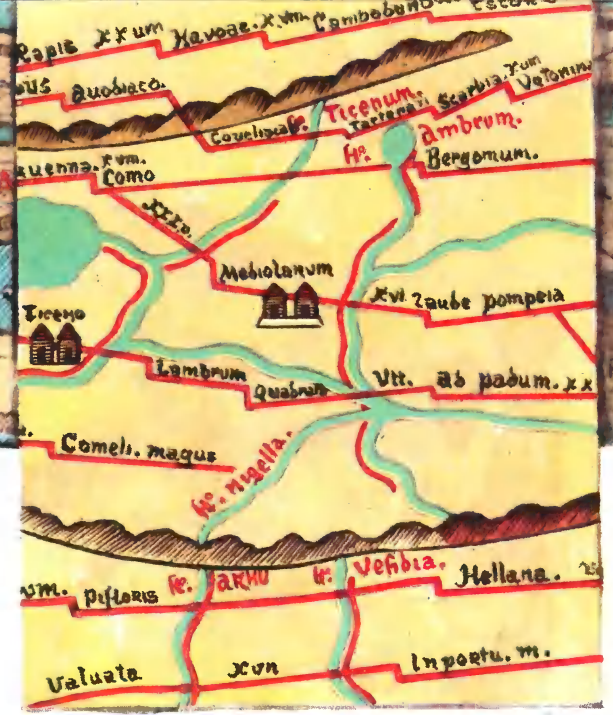 Rapis xxum Navoae. x vm. Cambobunu Escone
Quobiaco. Couelisca Tarteneri Scarbia. xum Vetonina
fl. Ticenum.
fl. ambrum.
xuenna. xvm. Como Bergomum.
xxxv.
Mediolanum
xvi. Laube pompeia
Ticeno
Lambrum Quadrum Vtt. ab padum. xx
Comeli. magus
fl. nigella.
vm. Pistoris fl. ARNU fl. Vesibia. Hellana.
Valuata xvn Inportu. m.